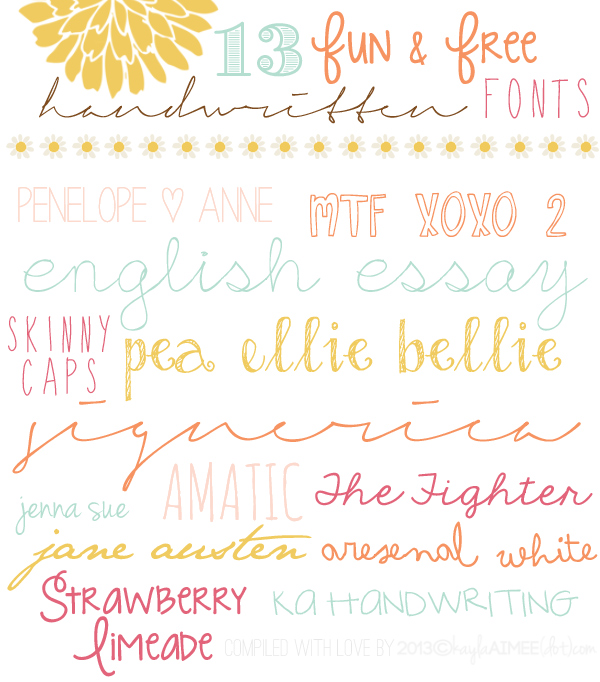 13 Fun & Free
handwritten FONTS
PENELOPE ♡ ANNE
MTF XOXO 2
english essay
SKINNY
CAPS
pea ellie bellie
signerica
jenna sue
AMATIC
The Fighter
jane austen
aresenal white
STRAWBERRY
LIMEADE
KA HANDWRITING
COMPILED WITH LOVE BY 2013©kaylaAIMEE(dot)com